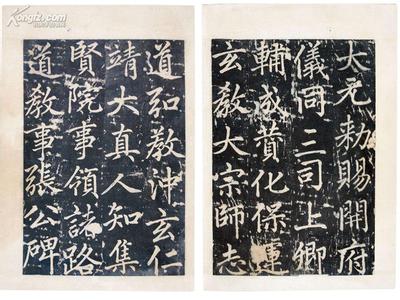 大元勑賜開府
儀同三司上卿
輔成贊化保運
玄教大宗師志
道弘教沖玄仁
靖大真人知集
賢院事領諸路
道教事張公碑
Kongfz.com